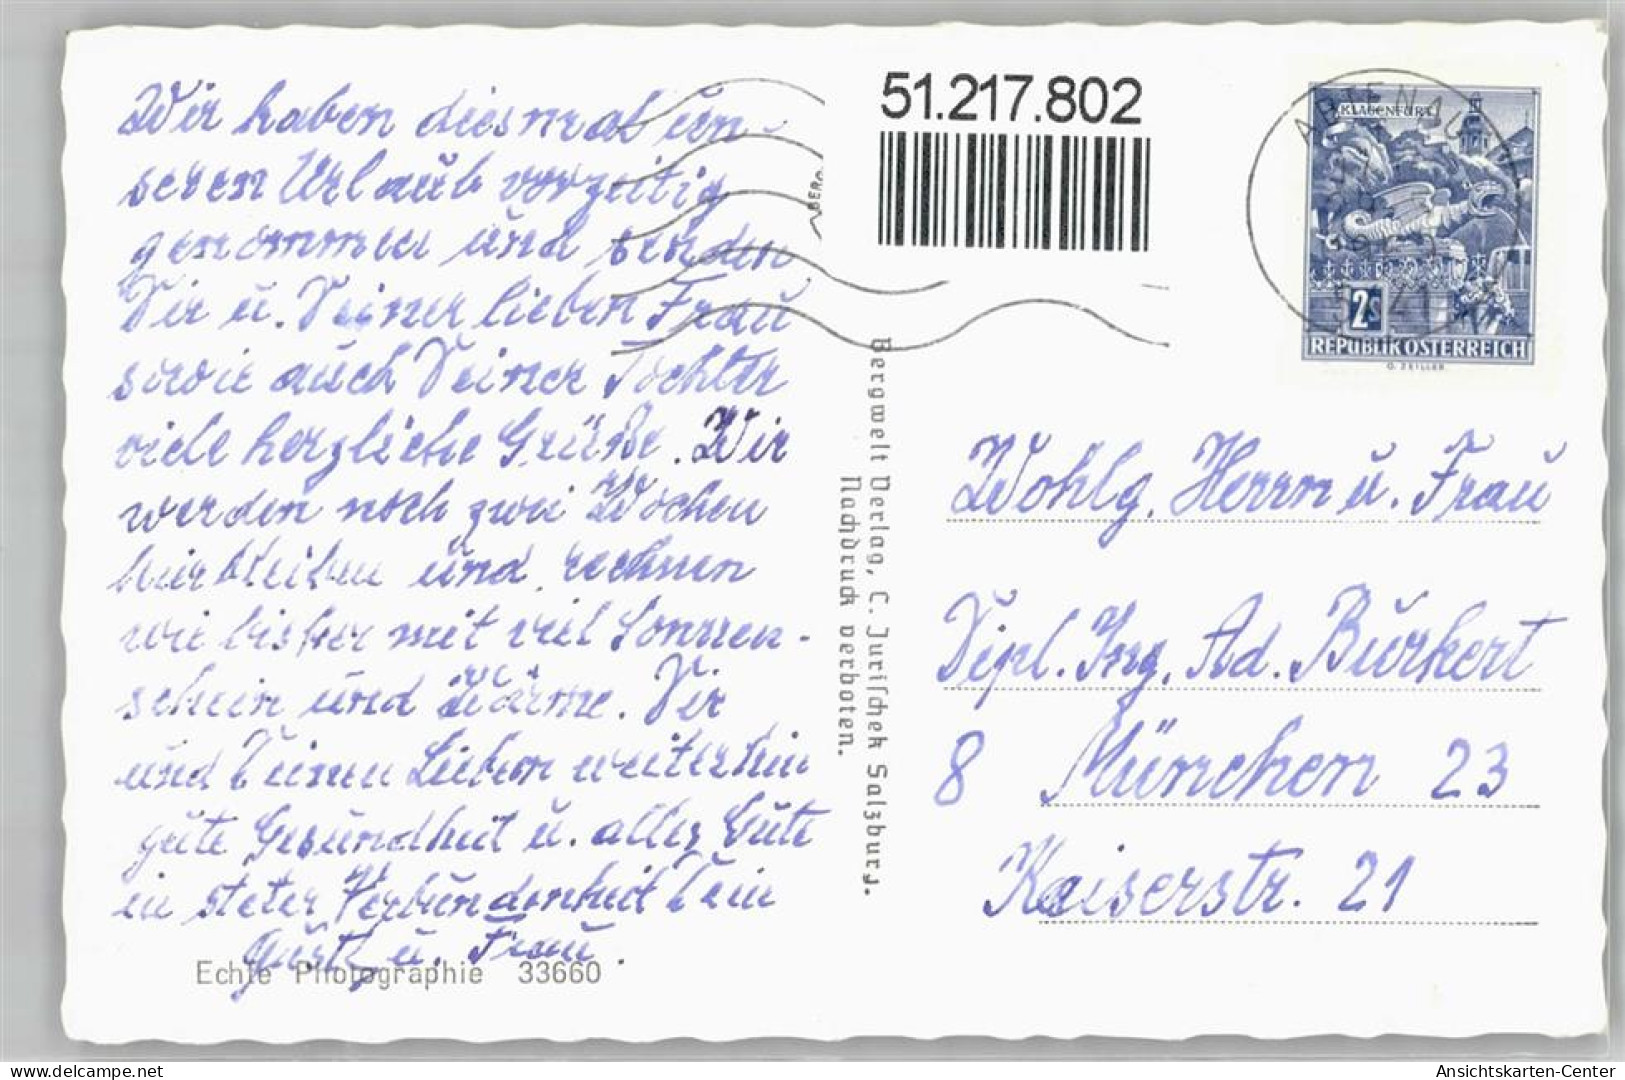 Wir haben diesmal un-
seren Urlaub vorzeitig
genommen und senden
Dir u. Deiner lieben Frau
sowie auch Deiner Tochter
viele herzliche Grüße. Wir
werden noch zwei Wochen
hierbleiben und rechnen
wie bisher mit viel Sonnen-
schein und Wärme. Dir
und Deinen Lieben weiterhin
gute Gesundheit u. alles Gute
in steter Verbundenheit Dein
u. Frau.
Echte Photographie 33660
Bergwelt Verlag, C. Jurischek Salzburg.
Nachdruck verboten.
51.217.802
BERG
KLAGENFURT
2S
REPUBLIK ÖSTERREICH
O. ZEILLER
Wohlg. Herrn u. Frau
Dipl. Ing. Ad. Burkert
8 München 23
Kaiserstr. 21
Ansichtskarten-Center